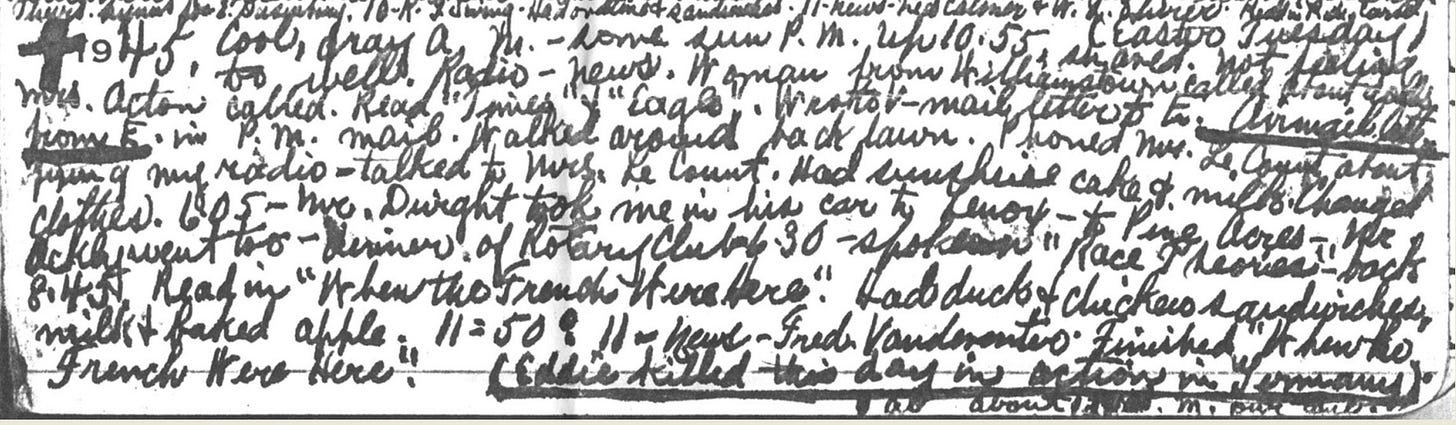 10-R. G. Swing - Had & sandwiches. 11-news-
1945, Cool, gray A. M. - some sun P. M. Up 10:55, (Easter Tuesday)
to well. Radio - news. Woman from Williamstown called about
Mrs. Acton called. Read "Times" & "Eagle". Wrote V-mail letter to E. Airmail
from E. in P. M. mail. Walked around back lawn. Phoned Mr. Le Count about
my radio - talked to Mrs. Le Count. Had sunshine cake & milk. Changed
clothes. 6:05 - Mr. Dwight took me in his car to Lenox - to Pine Acres - Mr.
Ackly went too - dinner of Rotary Club 6:30 - spoke on "Race Theories" - back
8:45. Read in "When the French Were Here". Had duck & chicken sandwiches,
milk & baked apple. 11:50 : 11 - News - Fred Vandeventer Finished "When the
French Were Here." (Eddie killed this day in action in Germany).
at about M. our